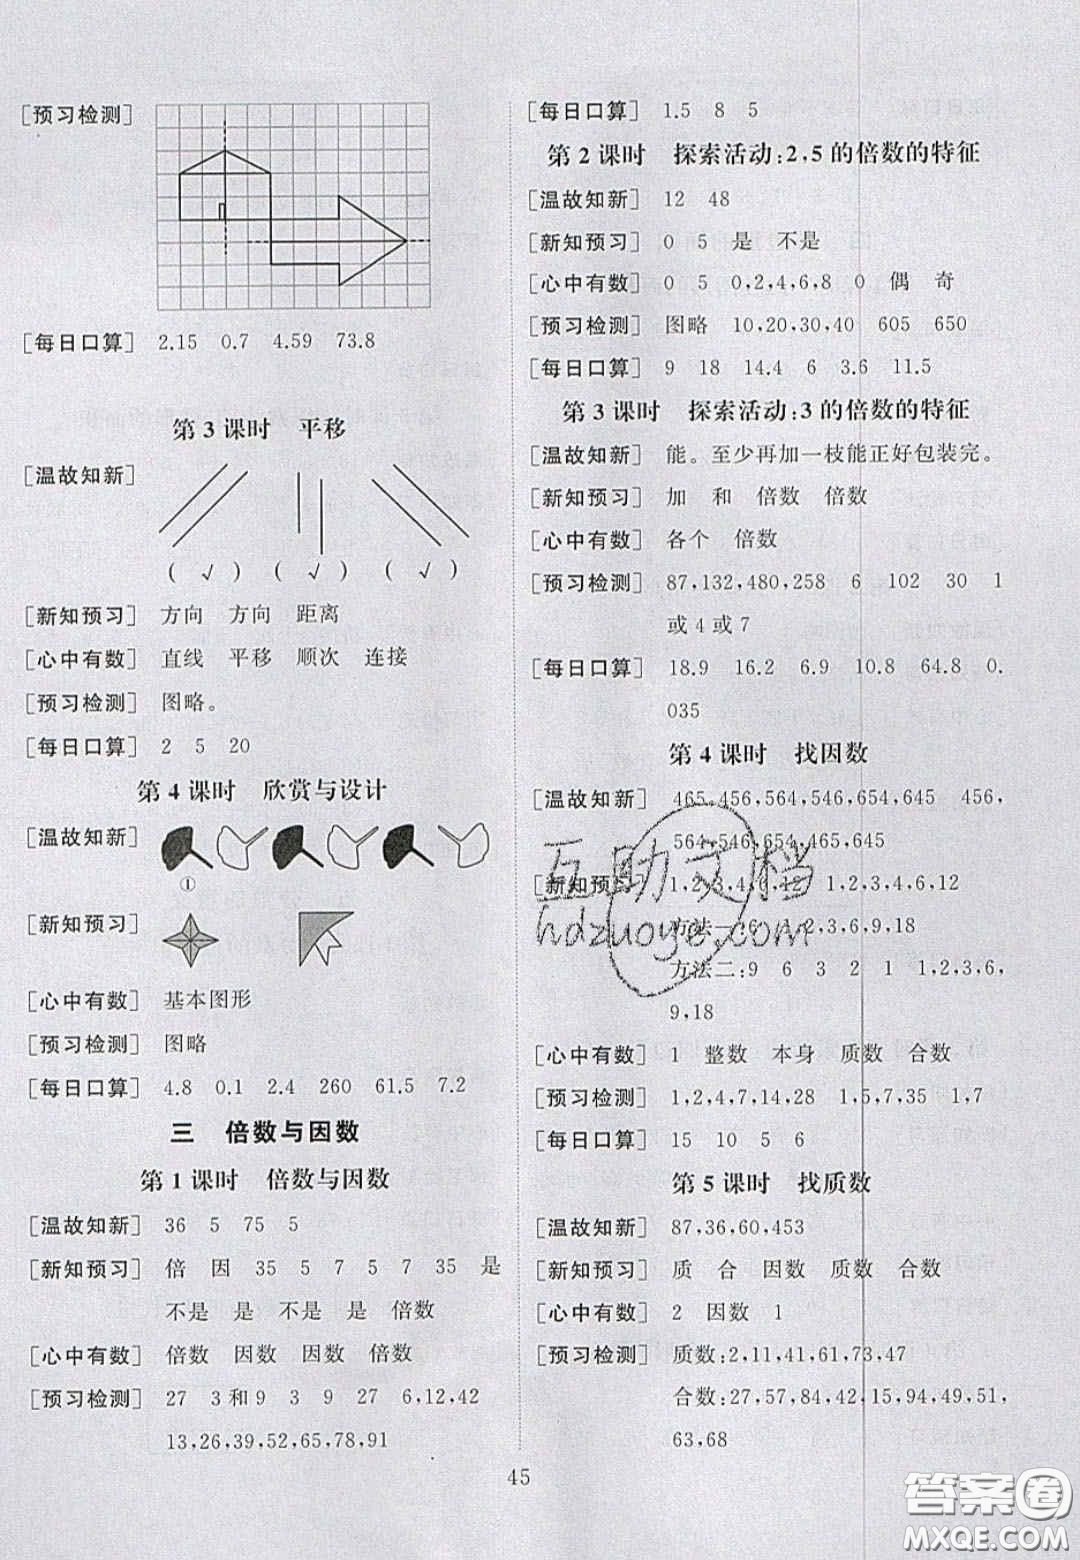 [预习检测]
[每日口算] 2.15 0.7 4.59 73.8
第3课时 平移
[温故知新]
( √ ) ( √ ) ( √ )
[新知预习] 方向 方向 距离
[心中有数] 直线 平移 顺次 连接
[预习检测] 图略。
[每日口算] 2 5 20
第4课时 欣赏与设计
[温故知新]
①
[新知预习]
[心中有数] 基本图形
[预习检测] 图略
[每日口算] 4.8 0.1 2.4 260 61.5 7.2
三 倍数与因数
第1课时 倍数与因数
[温故知新] 36 5 75 5
[新知预习] 倍 因 35 5 7 5 7 35 是
不是 是 不是 是 倍数
[心中有数] 倍数 因数 因数 倍数
[预习检测] 27 3和9 3 9 27 6,12,42
13,26,39,52,65,78,91
[每日口算] 1.5 8 5
第2课时 探索活动:2,5的倍数的特征
[温故知新] 12 48
[新知预习] 0 5 是 不是
[心中有数] 0 5 0,2,4,6,8 0 偶 奇
[预习检测] 图略 10,20,30,40 605 650
[每日口算] 9 18 14.4 6 3.6 11.5
第3课时 探索活动:3的倍数的特征
[温故知新] 能。至少再加一枝能正好包装完。
[新知预习] 加 和 倍数 倍数
[心中有数] 各个 倍数
[预习检测] 87,132,480,258 6 102 30 1
或4或7
[每日口算] 18.9 16.2 6.9 10.8 64.8 0.
035
第4课时 找因数
[温故知新] 465,456,564,546,654,645 456,
564,546,654,465,645
[新知预习] 1,2,3,4,6,12 1,2,3,4,6,12
方法一:6 1,2,3,6,9,18
方法二:9 6 3 2 1 1,2,3,6,
9,18
[心中有数] 1 整数 本身 质数 合数
[预习检测] 1,2,4,7,14,28 1,5,7,35 1,7
[每日口算] 15 10 5 6
第5课时 找质数
[温故知新] 87,36,60,453
[新知预习] 质 合 因数 质数 合数
[心中有数] 2 因数 1
[预习检测] 质数:2,11,41,61,73,47
合数:27,57,84,42,15,94,49,51,
63,68
45
互助文档
hdzuoye.com
答案圈
MXQE.COM